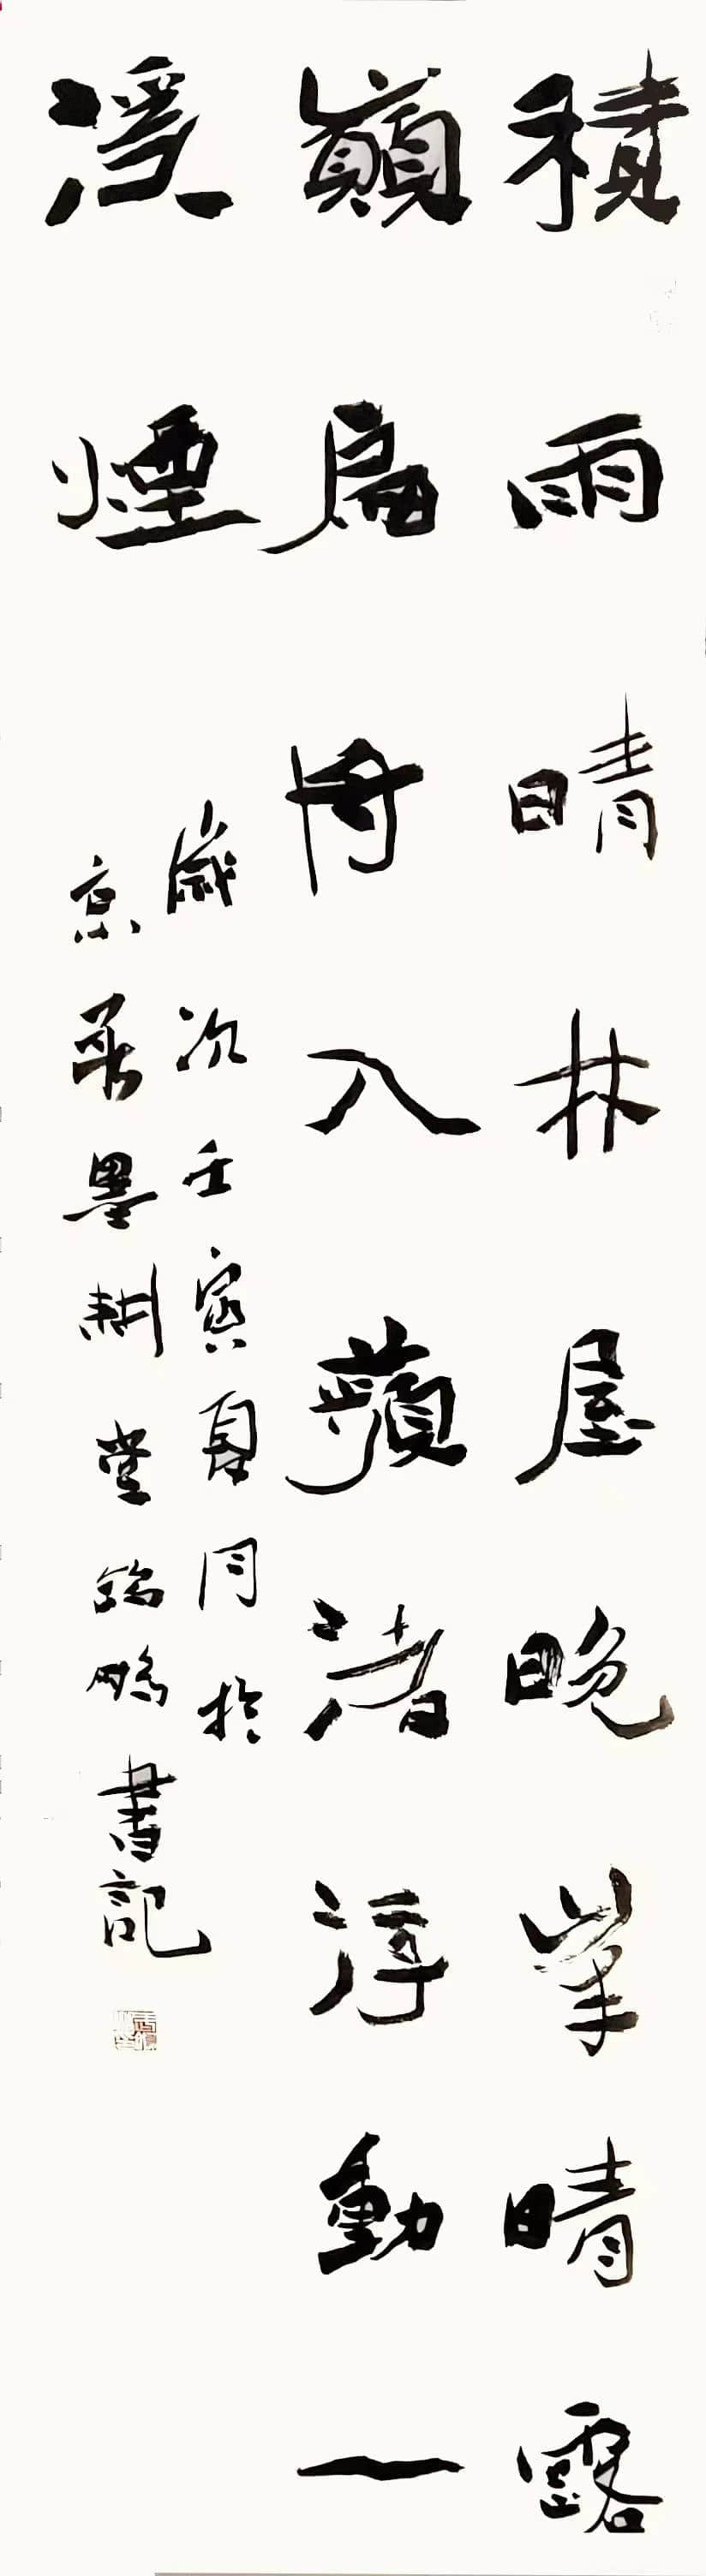 積雨晴林屋晚峯晴露
巔扁舟入蘋渚浮動一
溪煙
歲次壬寅夏月於
京墨耕堂鵬書記